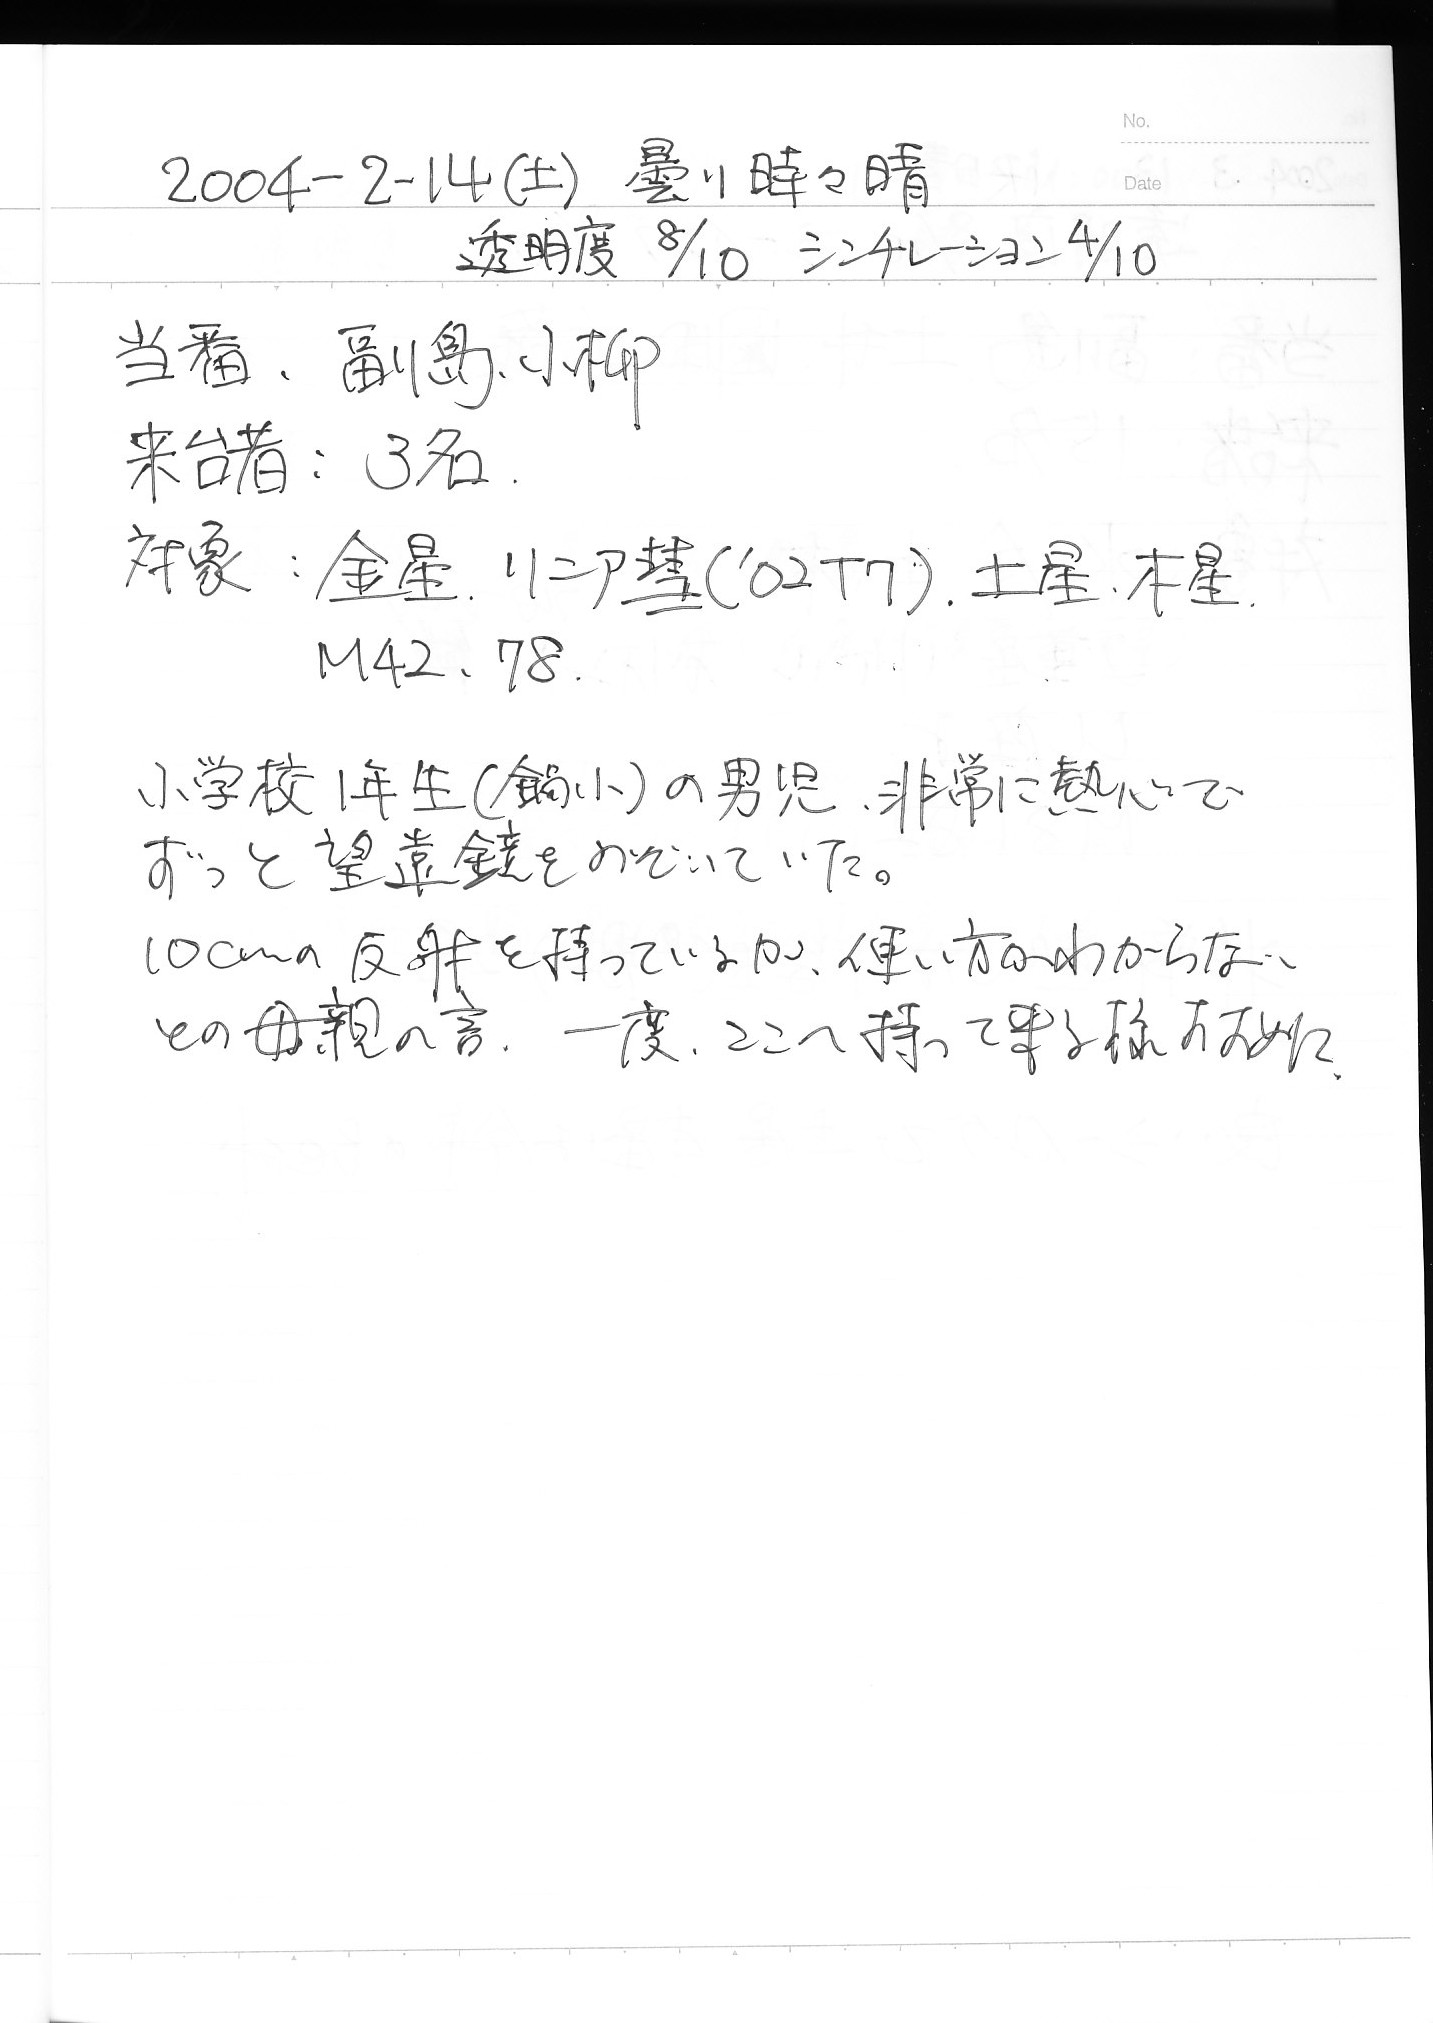 No.
2004-2-14(土) 曇り時々晴
Date
透明度 8/10 シンチレーション4/10
当番、副島、小柳
来台者:3名.
対象:金星.リニア彗('02T7).土星、木星.
M42、78.
小学校1年生(鍋小)の男児、非常に熱心で
ずっと望遠鏡をのぞいていた。
10cmの反射を持っているが、使い方がわからない
との母親の言.一度、ここへ持って来る様すすめた.